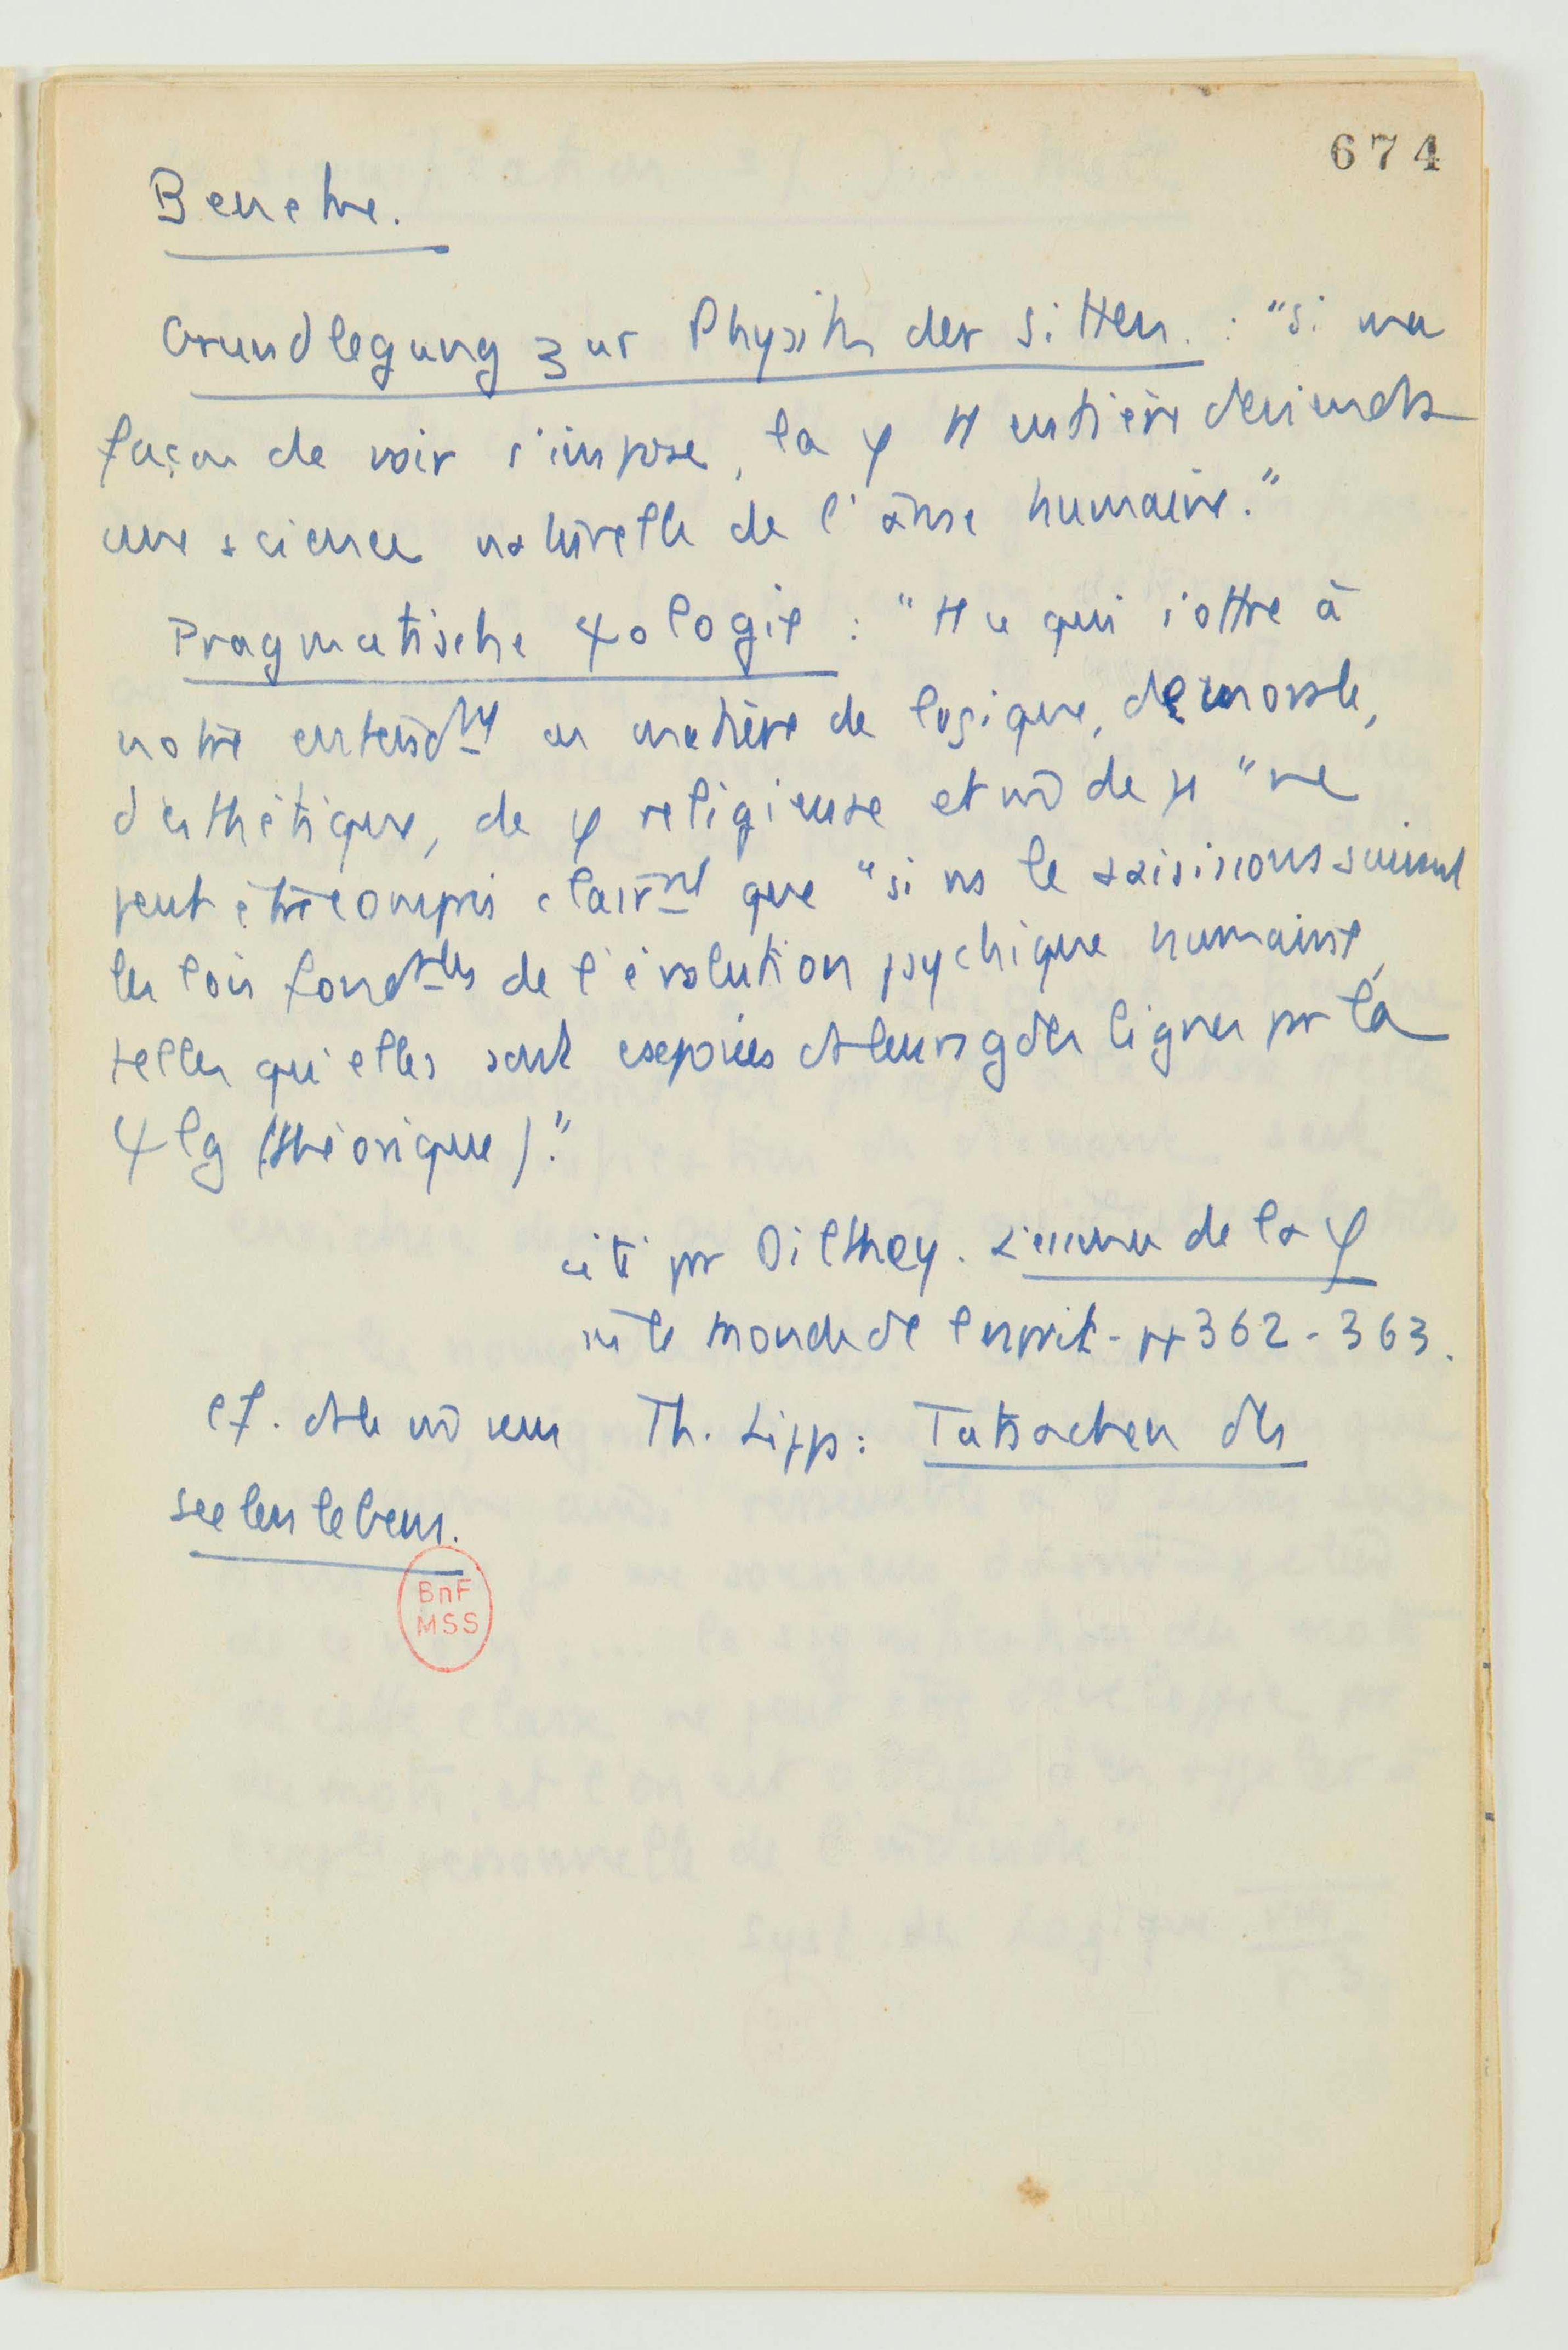 674
Beneke.
Grundlegung zur Physik der Sitten. : "Si ma
façon de voir s'impose, la φ tt entière deviendra
une science naturelle de l'âme humaine."
Pragmatische ψologie : "tt ce qui s'offre à
notre entendmt en matière de logique, de morale,
d'esthétique, de φ religieuse et m̄ de μ "ne
peut être compris clairmt que "si ns le saisissons suivant
les lois fondtles de l'évolution psychique humaine,
telles qu'elles sont exposées ds leurs gdes lignes par la
ψlg (théorique)."
cité par Dilthey. L'essence de la φ
in le monde de l'esprit - pp 362 - 363.
cf. ds le m̄ sens Th. Lipps : Tatsachen des
Seelenlebens.
BnF
MSS